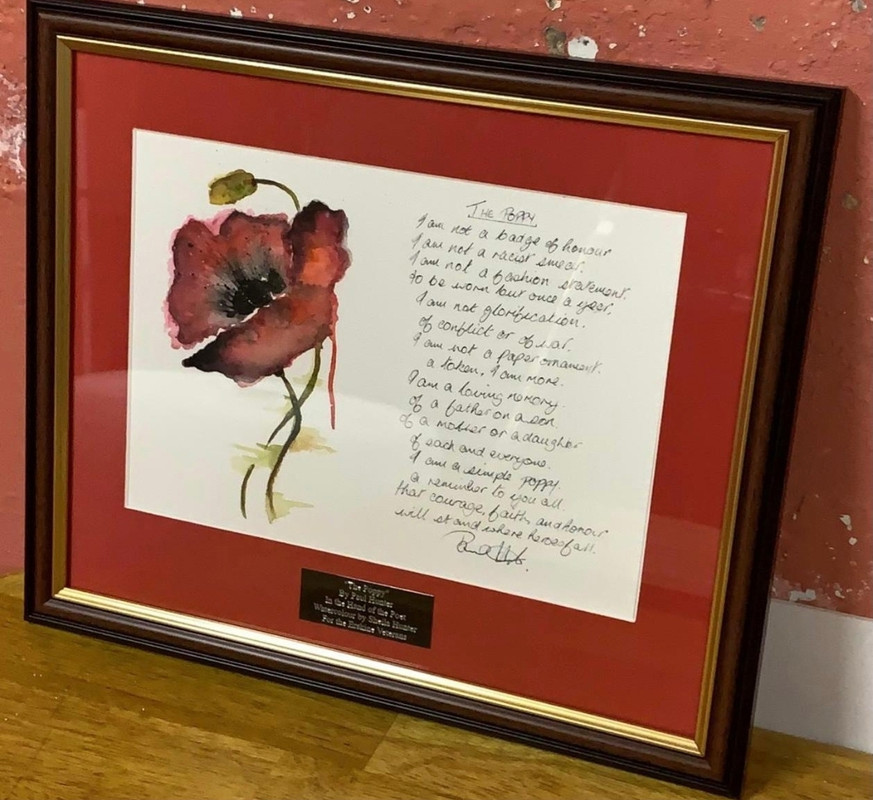 The Poppy
I am not a badge of honour
I am not a racist smear.
I am not a fashion statement.
to be worn but once a year.
I am not glorification.
of conflict or of war.
I am not a paper ornament.
a token, I am more.
I am a loving memory.
of a father or a son.
of a mother or a daughter
of each and everyone.
I am a simple poppy.
a remember to you all.
that courage, faith, and honour
will stand where heroes fall.
"The Poppy"
By Paul Hunter
In the Hand of the Poet
Watercolour by Sheila Hunter
For the Erskine Veterans